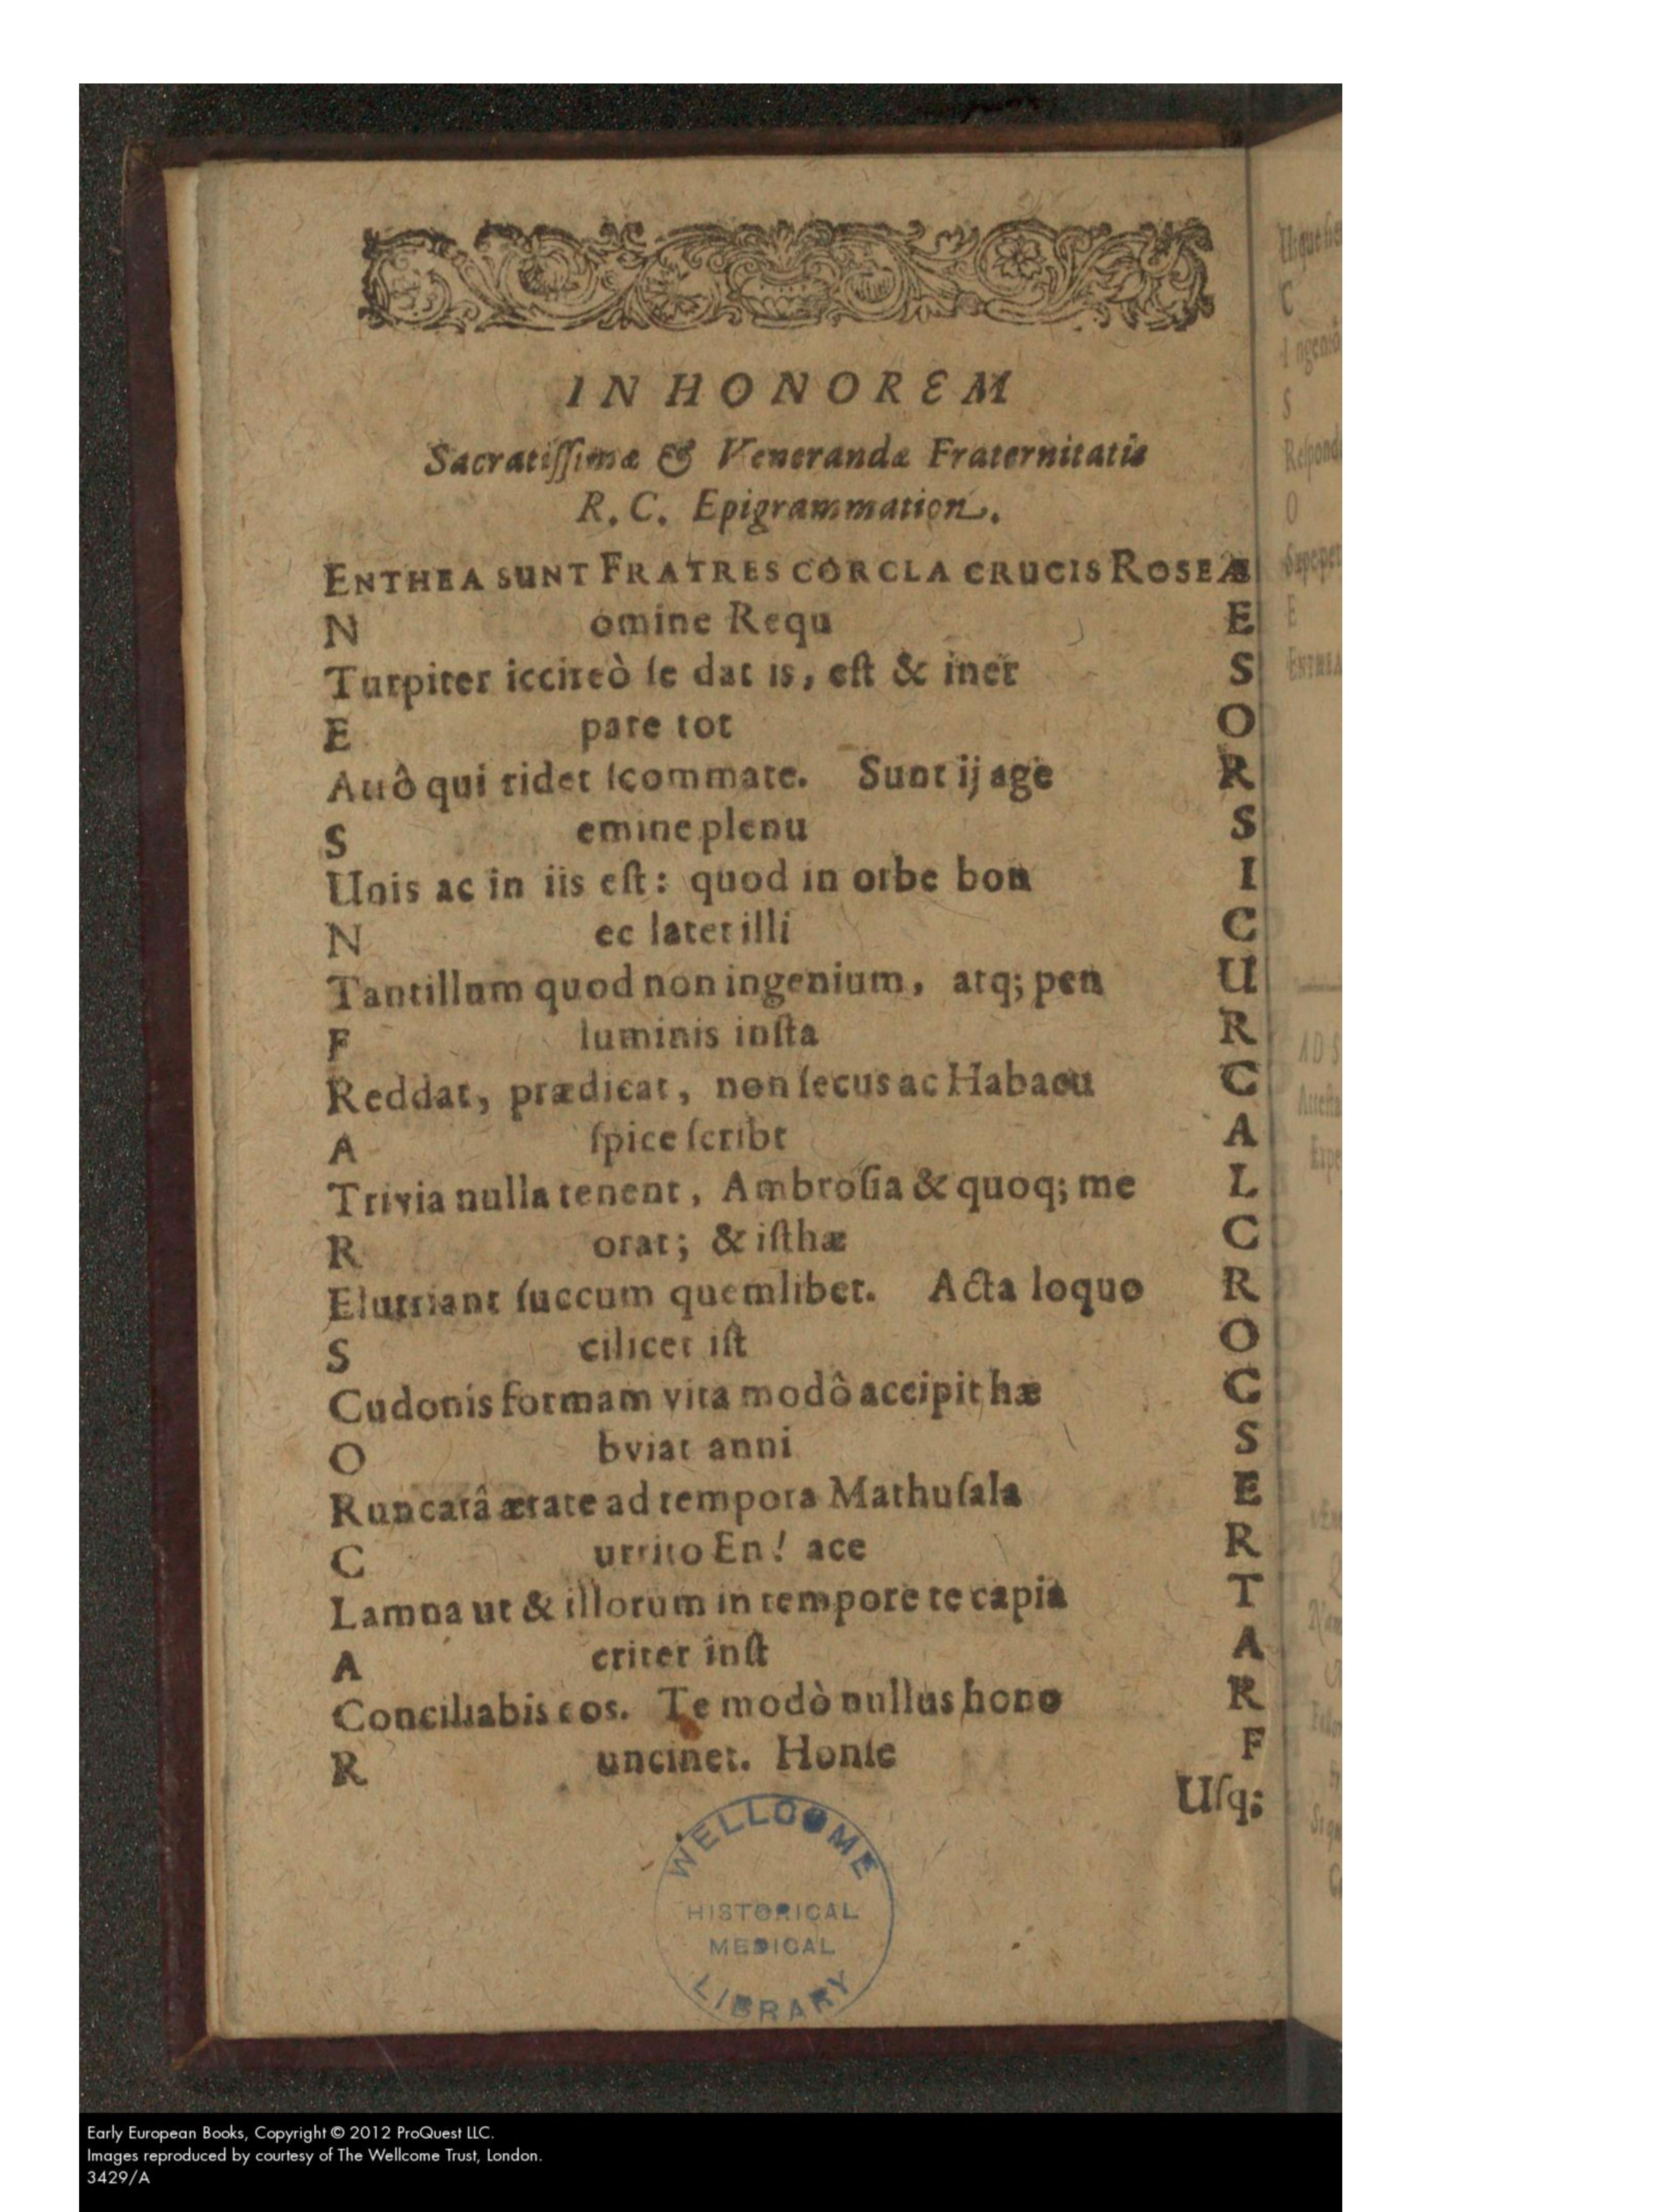 IN HONOREM
Sacratiſſimæ & Venerandæ Fraternitatis
R. C. Epigrammation.
ENTHEA SUNT FRATRES CORCLA CRUCIS ROSEÆ
N omine Requ E
Turpiter iccircò ſe dat is, eſt & iner S
E pare tot O
Attô qui ridet ſcommate. Sunt ij age R
S emine plenu S
Unis ac in iis eſt: quod in orbe bon I
N ec latet illi C
Tantillum quod non ingenium, atq; pen U
F luminis inſta R
Reddat, prædicat, non ſecus ac Habacu C
A ſpice ſcribt A
Trivia nulla tenent, Ambroſia & quoq; me L
R orat; & iſthæ C
Elutriant ſuccum quemlibet. Acta loquo R
S cilicet iſt O
Cudonis formam vita modô accipit hæ C
O bviat anni S
Runcatâ ætate ad tempora Mathuſala E
C urrito En! ace R
Lamna ut & illorum in tempore te capia T
A criter inſt A
Conciliabis eos. Te modò nullus hono R
R uncinet. Honſe F
Uſq;
WELLCOME
HISTORICAL
MEDICAL
LIBRARY
Early European Books, Copyright © 2012 ProQuest LLC.
Images reproduced by courtesy of The Wellcome Trust, London.
3429/A